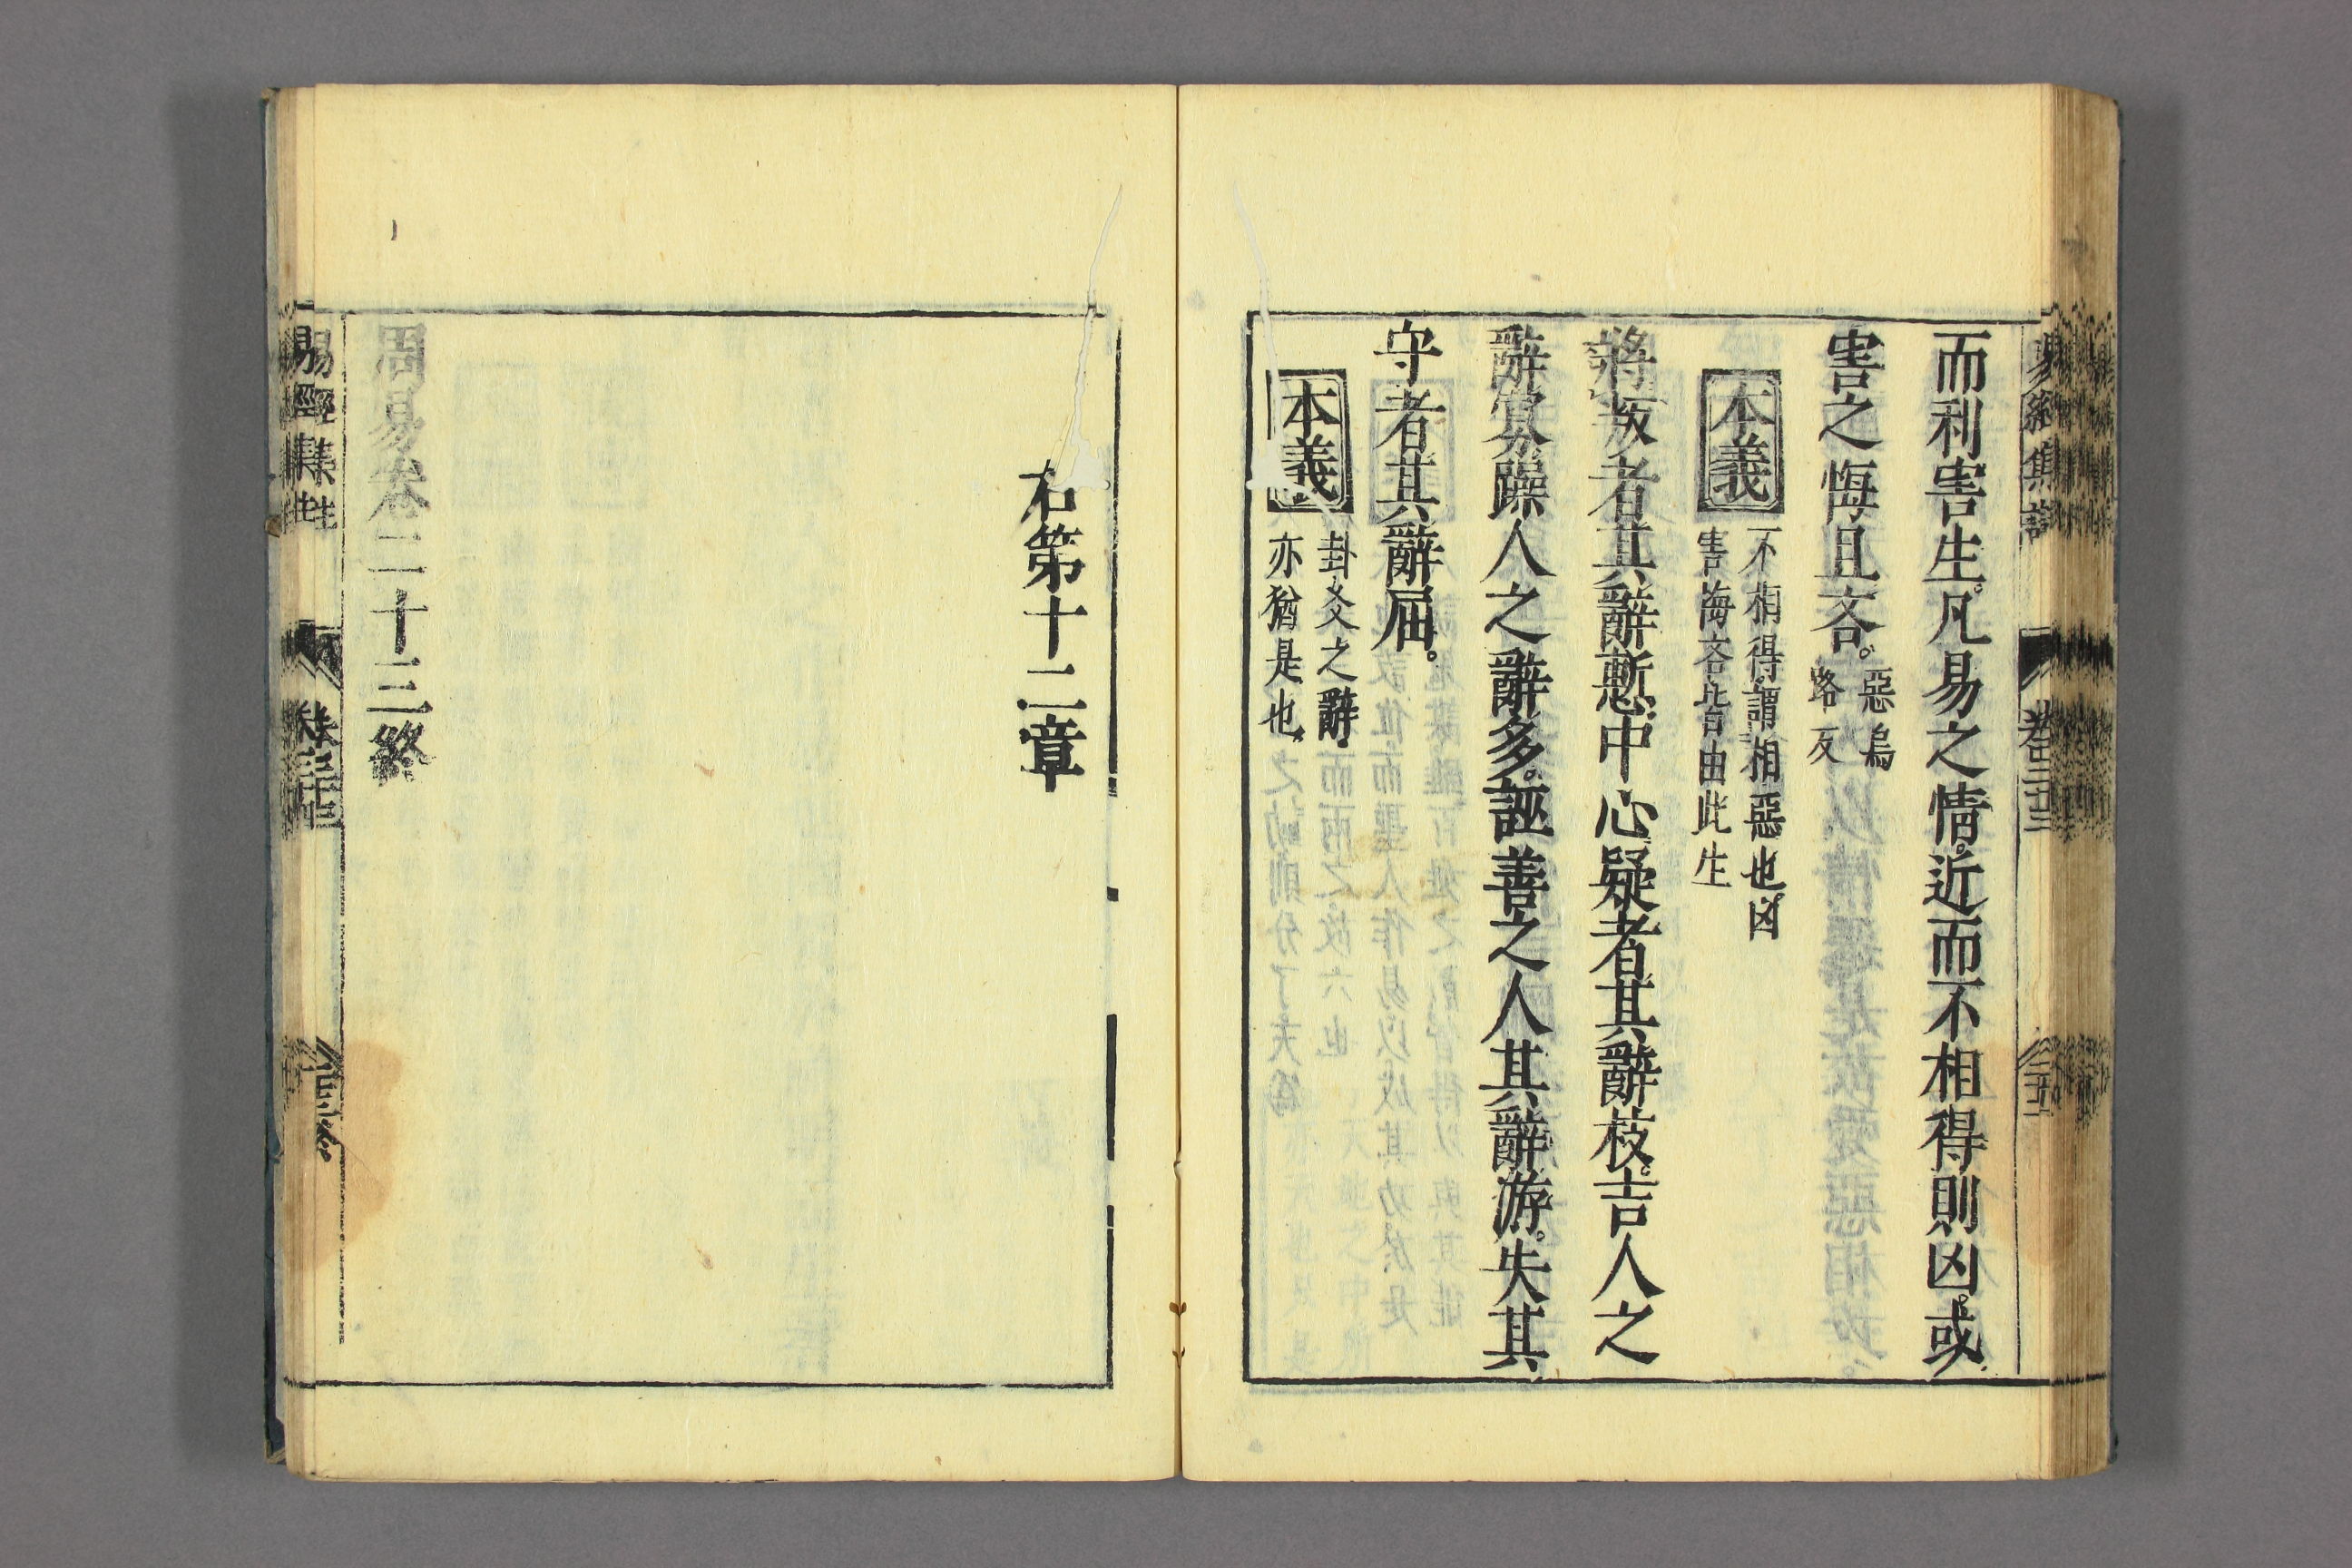 而利害生。凡易之情。近而不相得則凶。或
害之悔且吝。
惡烏
路反
本義
不相得。謂相惡也。凶
害悔吝皆由此生
將叛者其辭慙。中心疑者其辭枝。吉人之
辭寡。躁人之辭多。誣善之人其辭游。失其
守者其辭屈。
本義
卦爻之辭。
亦猶是也。
右第十二章
周易卷二十三終